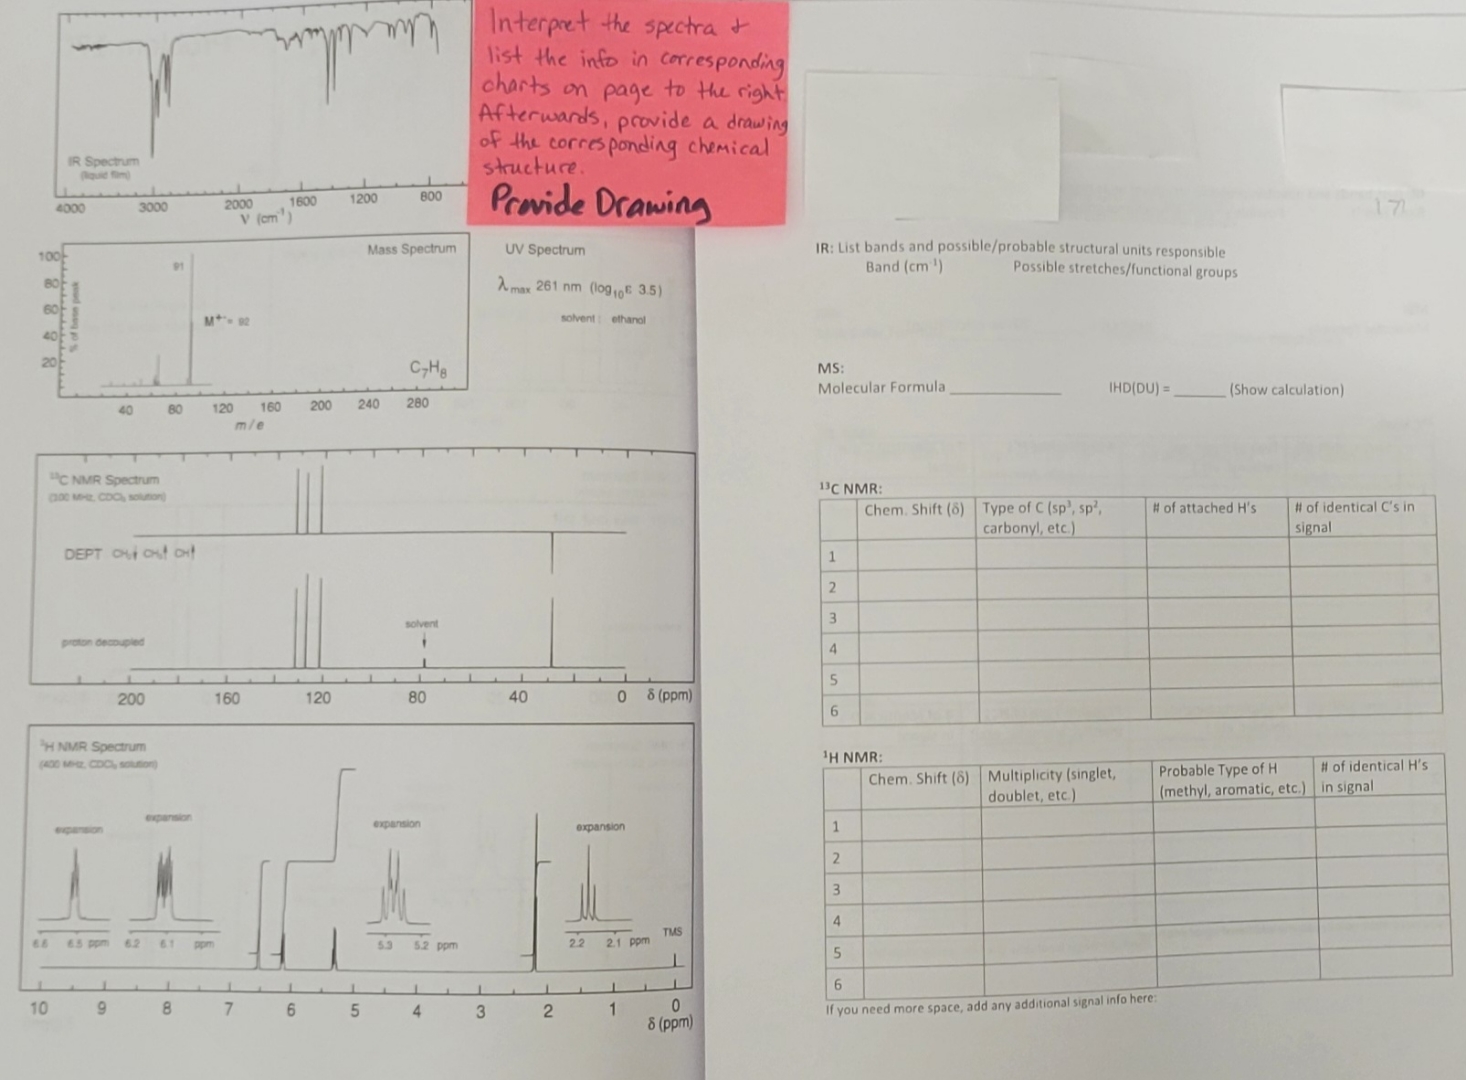 Interpret the spectra &
list the info in corresponding
charts on page to the right.
Afterwards, provide a drawing
of the corresponding chemical
structure.
Provide Drawing
IR Spectrum
(liquid film)
4000 3000 2000 1600 1200 800
V (cm⁻¹)
Mass Spectrum
100
80
60
40
20
% of base peak
91
M⁺·= 92
C₇H₈
40 80 120 160 200 240 280
m/e
UV Spectrum
λmax 261 nm (log₁₀ε 3.5)
solvent : ethanol
¹³C NMR Spectrum
(100 MHz, CDCl₃ solution)
DEPT CH₂↓ CH₃↑ CH↑
proton decoupled
solvent
200 160 120 80 40 0 δ (ppm)
¹H NMR Spectrum
(400 MHz, CDCl₃ solution)
expansion expansion expansion expansion
6.6 6.5 ppm 6.2 6.1 ppm 5.3 5.2 ppm 2.2 2.1 ppm
TMS
10 9 8 7 6 5 4 3 2 1 0
δ (ppm)
IR: List bands and possible/probable structural units responsible
Band (cm⁻¹) Possible stretches/functional groups
MS:
Molecular Formula ____________ IHD(DU) = ______ (Show calculation)
¹³C NMR:
Chem. Shift (δ) Type of C (sp³, sp², carbonyl, etc.) # of attached H's # of identical C's in signal
1
2
3
4
5
6
¹H NMR:
Chem. Shift (δ) Multiplicity (singlet, doublet, etc.) Probable Type of H (methyl, aromatic, etc.) # of identical H's in signal
1
2
3
4
5
6
If you need more space, add any additional signal info here: